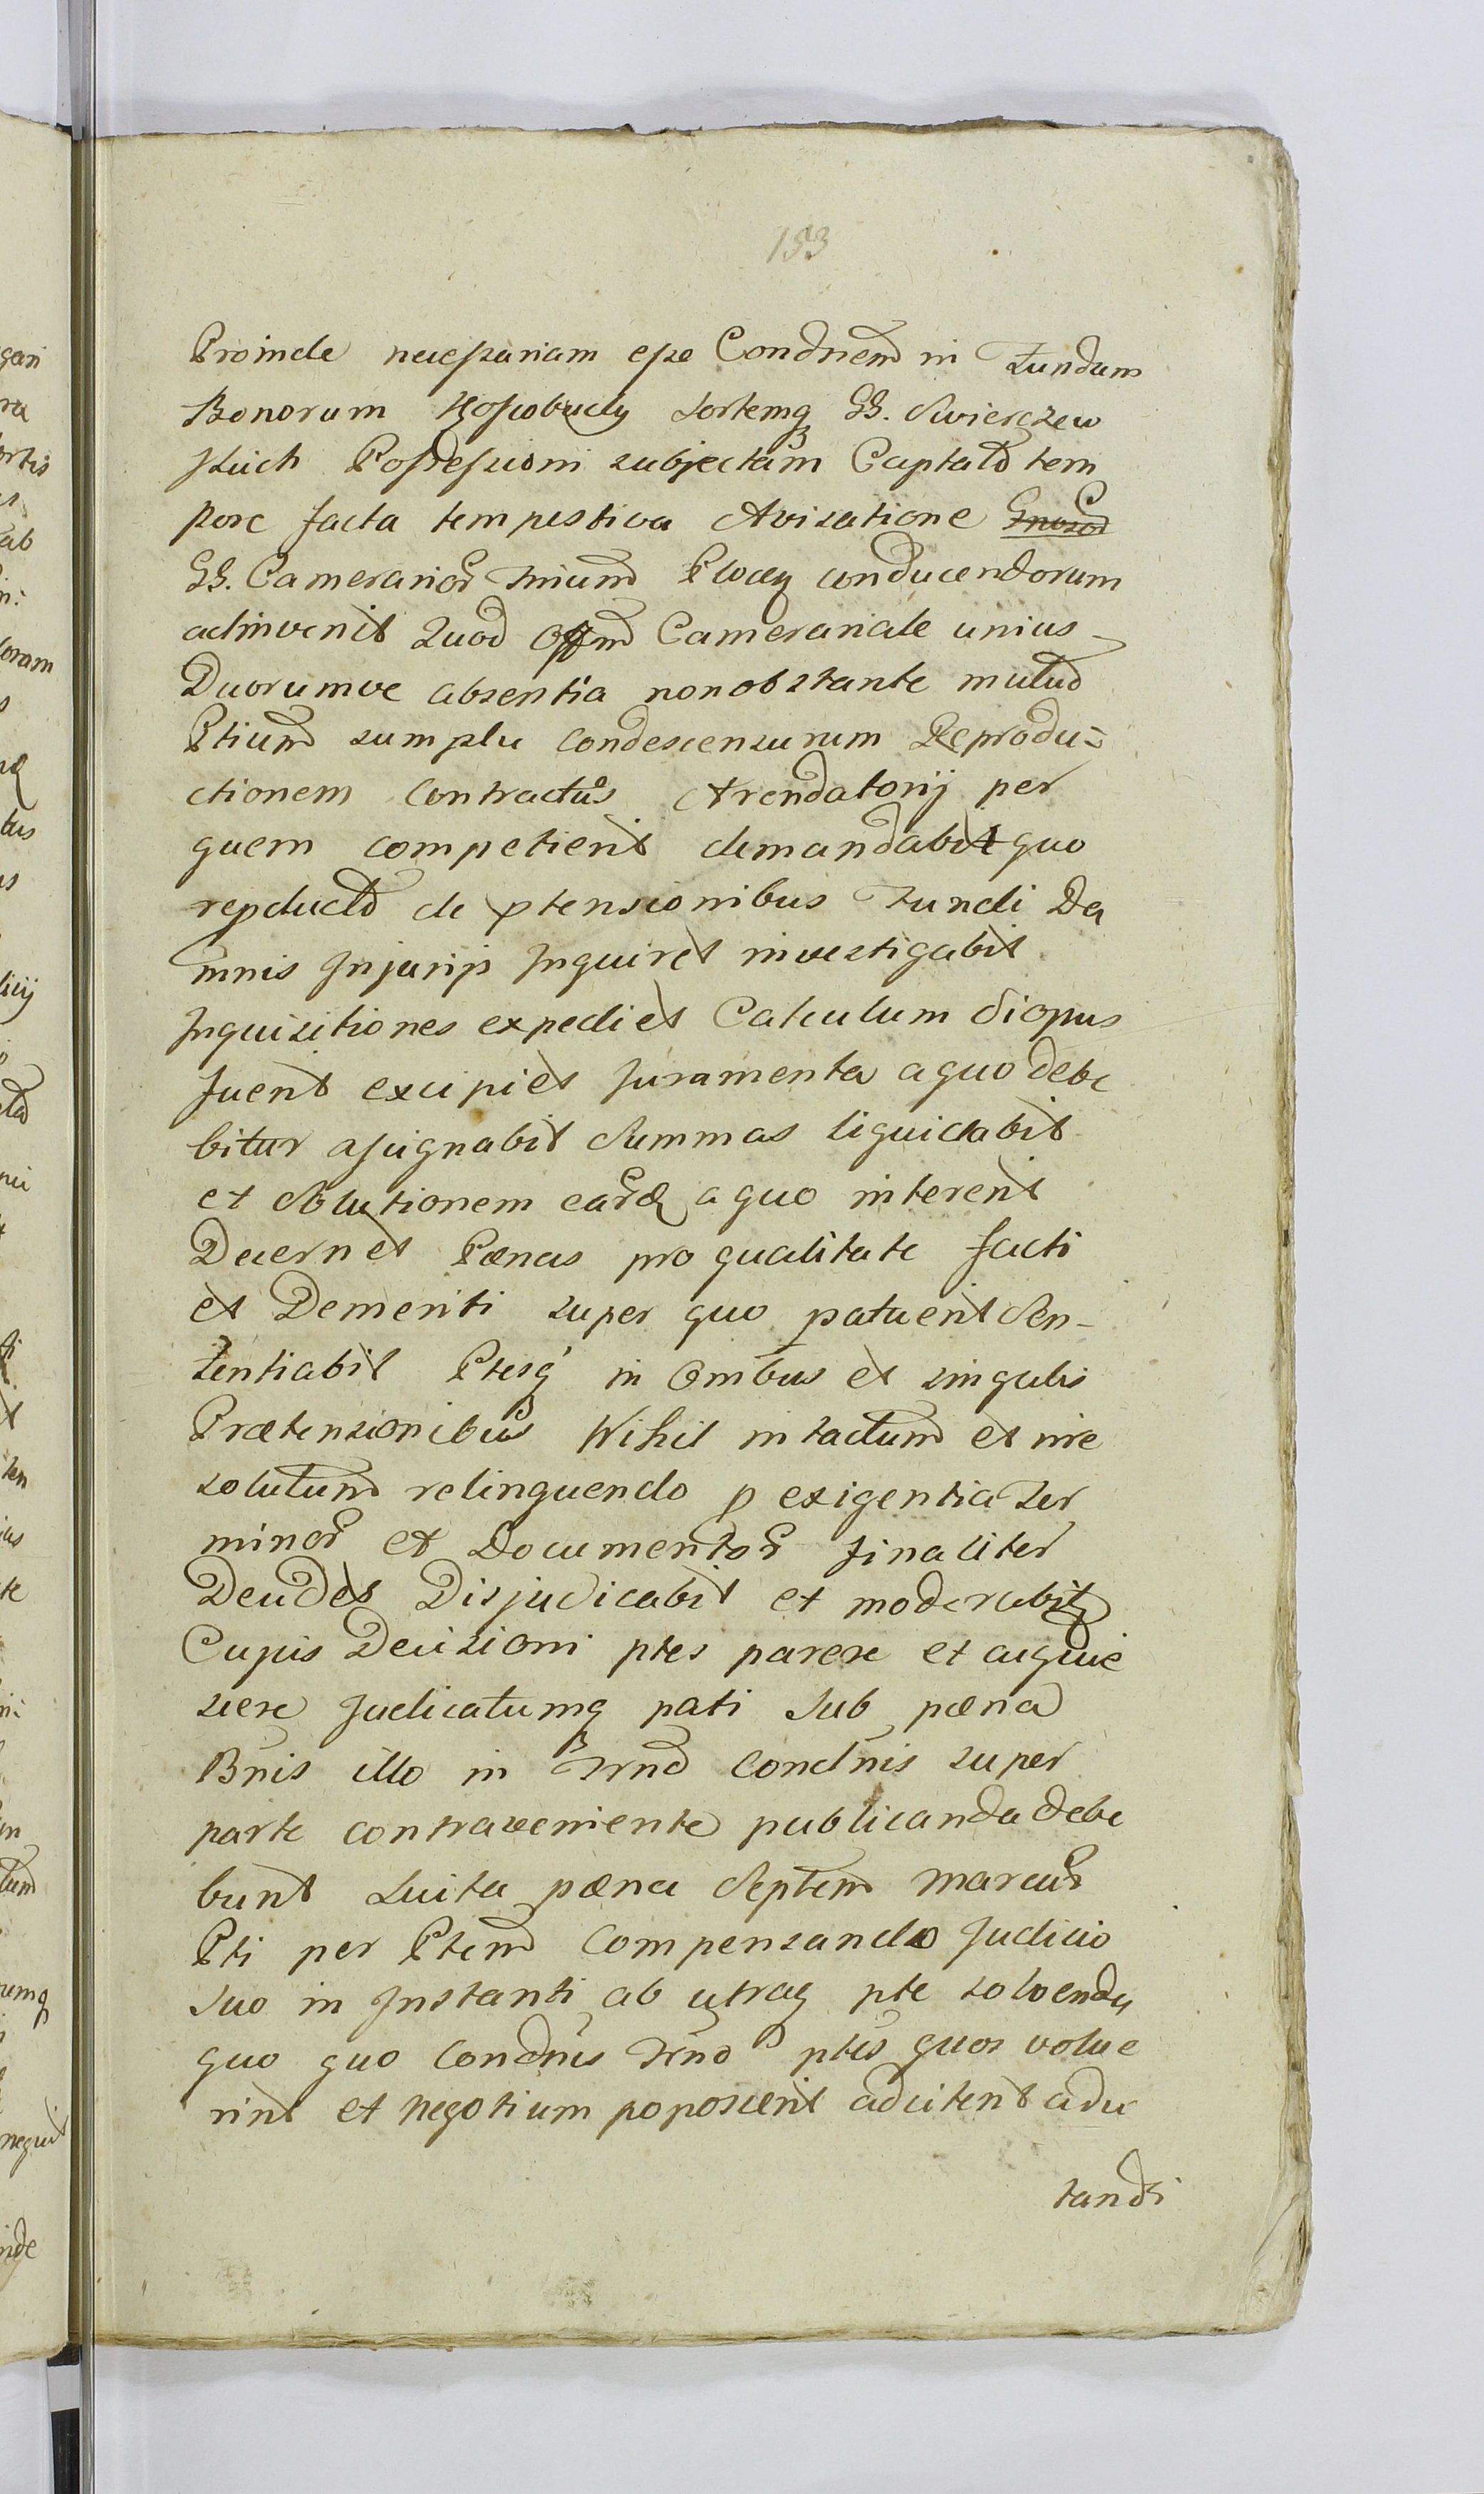 153
Proinde necessariam esse Condnem in Fundum
Bonorum Sortemq GG. Swierczew
skich Possessioni subjectam Captato tem
pore facta tempestiva Avisatione
GG. Camerarior Trium Plocen conducendorum
adinvenit Quod Offm Camerariale unius
Duorumve absentia non obstante mutuo
Ptium sumptu condescensurum Reprodu=
ctionem Contractus Arendatorij per
quem competierit demandabit quo
repducto de ptensionibus Fundi Da
mnis Injurijs Inquiret investigabit
Inquisitiones expediet Calculum Si opus
fuerit excipiet Juramenta a quo debe
bitur assignabit Summas liquidabit
et Solutionem earq a quo intererit
Decernet Pænas pro qualitate facti
et Demeriti super quo patuerit Sen-
tentiabit Ptesq in Omibus et singulis
Prætensionibus Nihil intactum et irre
solutum relinquendo p exigentia Ter
minor et Documentor finaliter
Decidet Disjudicabit et moderabit
Cujus Decisioni ptes parere et acquie
scere Judicatumq pati sub pæna
Bnis illo in Trno Condnis super
parte contraveniente publicanda debe
bunt Luita pæna Septem Marcar
Pti per Ptem Compensando Judicio
suo in Instanti ab utraq pte solvenda
quo quo Condnis Trno ptes quos volue
rint et negotium poposcerit adcitent adci
tandi